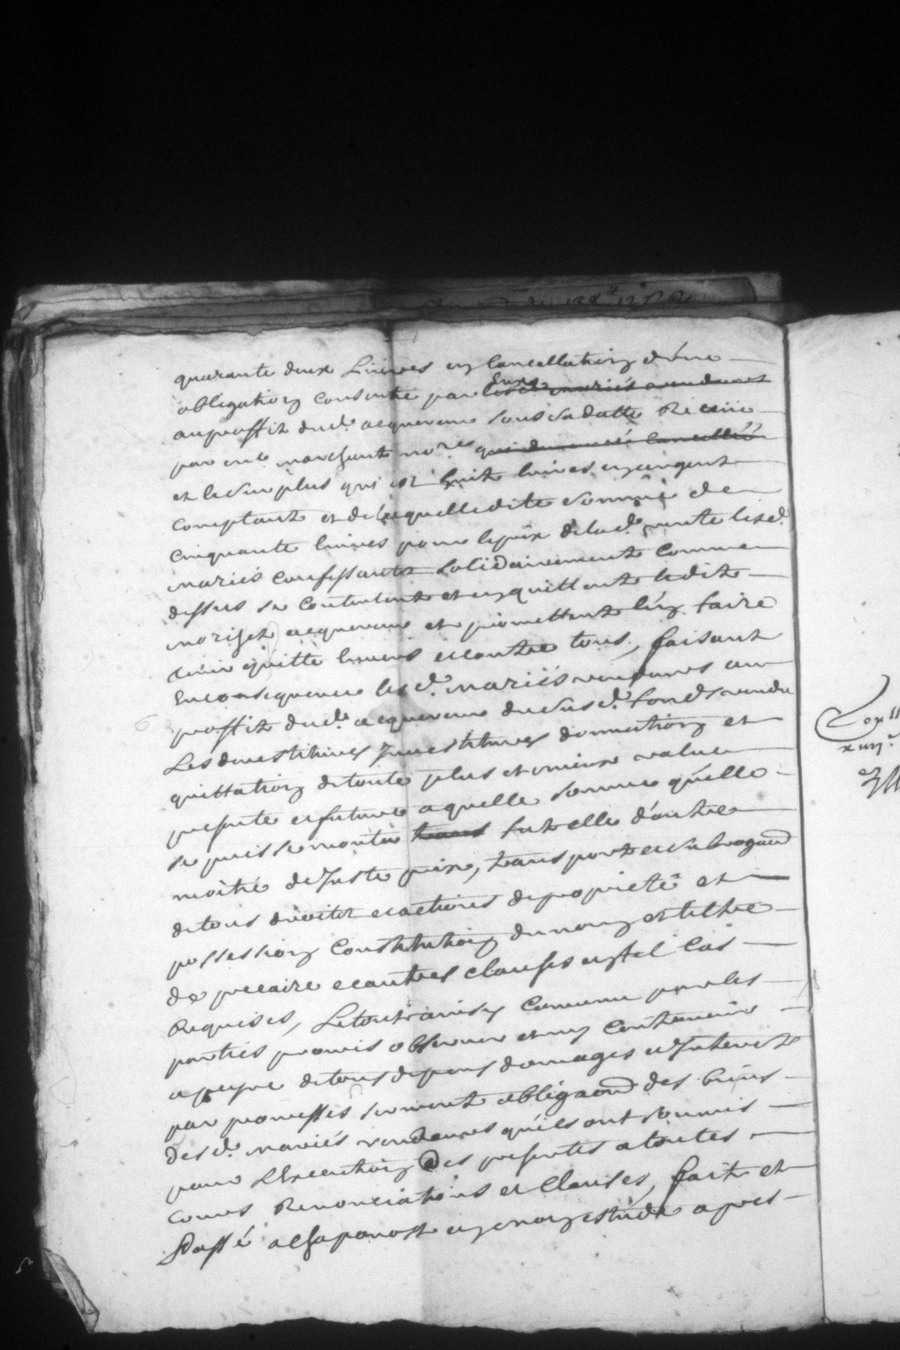 quarante deux Livres en Cancellation d'une
obligation consentie par Eux lesd. mariés vendeurs
au proffit dud. acquereur sous sa datte Receüe
par me marchant nore qui demeure Cancellée
et le surplus qui est huit livres en argent
comptant et de laquelle dite somme de
cinquante livres pour le prix de lad. vente lesd.
mariés confessants solidairement comme
dessus se contentent et en quittent ledit
acquereur et promettent l'en faire
tenir quitte envers et contre tous, faisant
En consequence lesd. mariés vendeurs au
proffit dud. acquereur du susd. fonds vendu
Les devestitures Investitures donnation et
quittation de toute plus et mieux value
presente et future a quelle somme qu'elle
se puisse monter fut elle d'outre
moitié de Juste prix, transport et subrogaon
de tous droits et actions de proprieté et
possession Constitution du nom et tiltre
de precaire et autres clauses en tel cas
Requises, Le tout ainsy Convenu par les
parties promis observer et ny Contrevenir
a peyne de tous depens domages et Interests
par promesses serment obligaon des biens
desd. mariés vendeurs qu'ils ont soumis
pour L'Execution des presentes a toutes
cours Renonciations et Clauses, fait et
Passé a Chaponost en mon estude apres